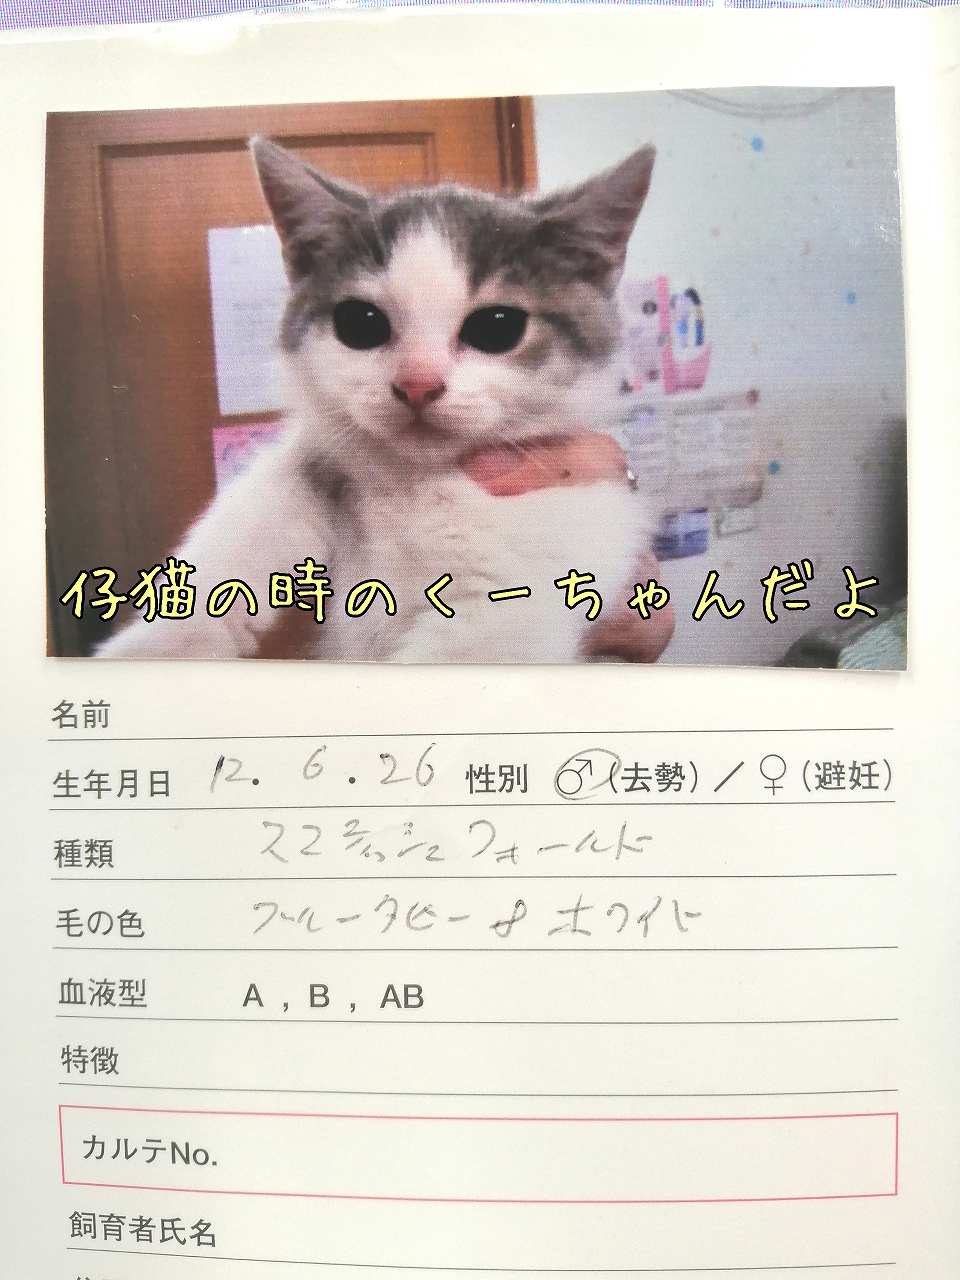 仔猫の時のくーちゃんだよ
名前
生年月日 12. 6. 26 性別 ♂(去勢)/♀(避妊)
種類 スコティッシュフォールド
毛の色 ブルータビー&ホワイト
血液型 A , B , AB
特徴
カルテNo.
飼育者氏名